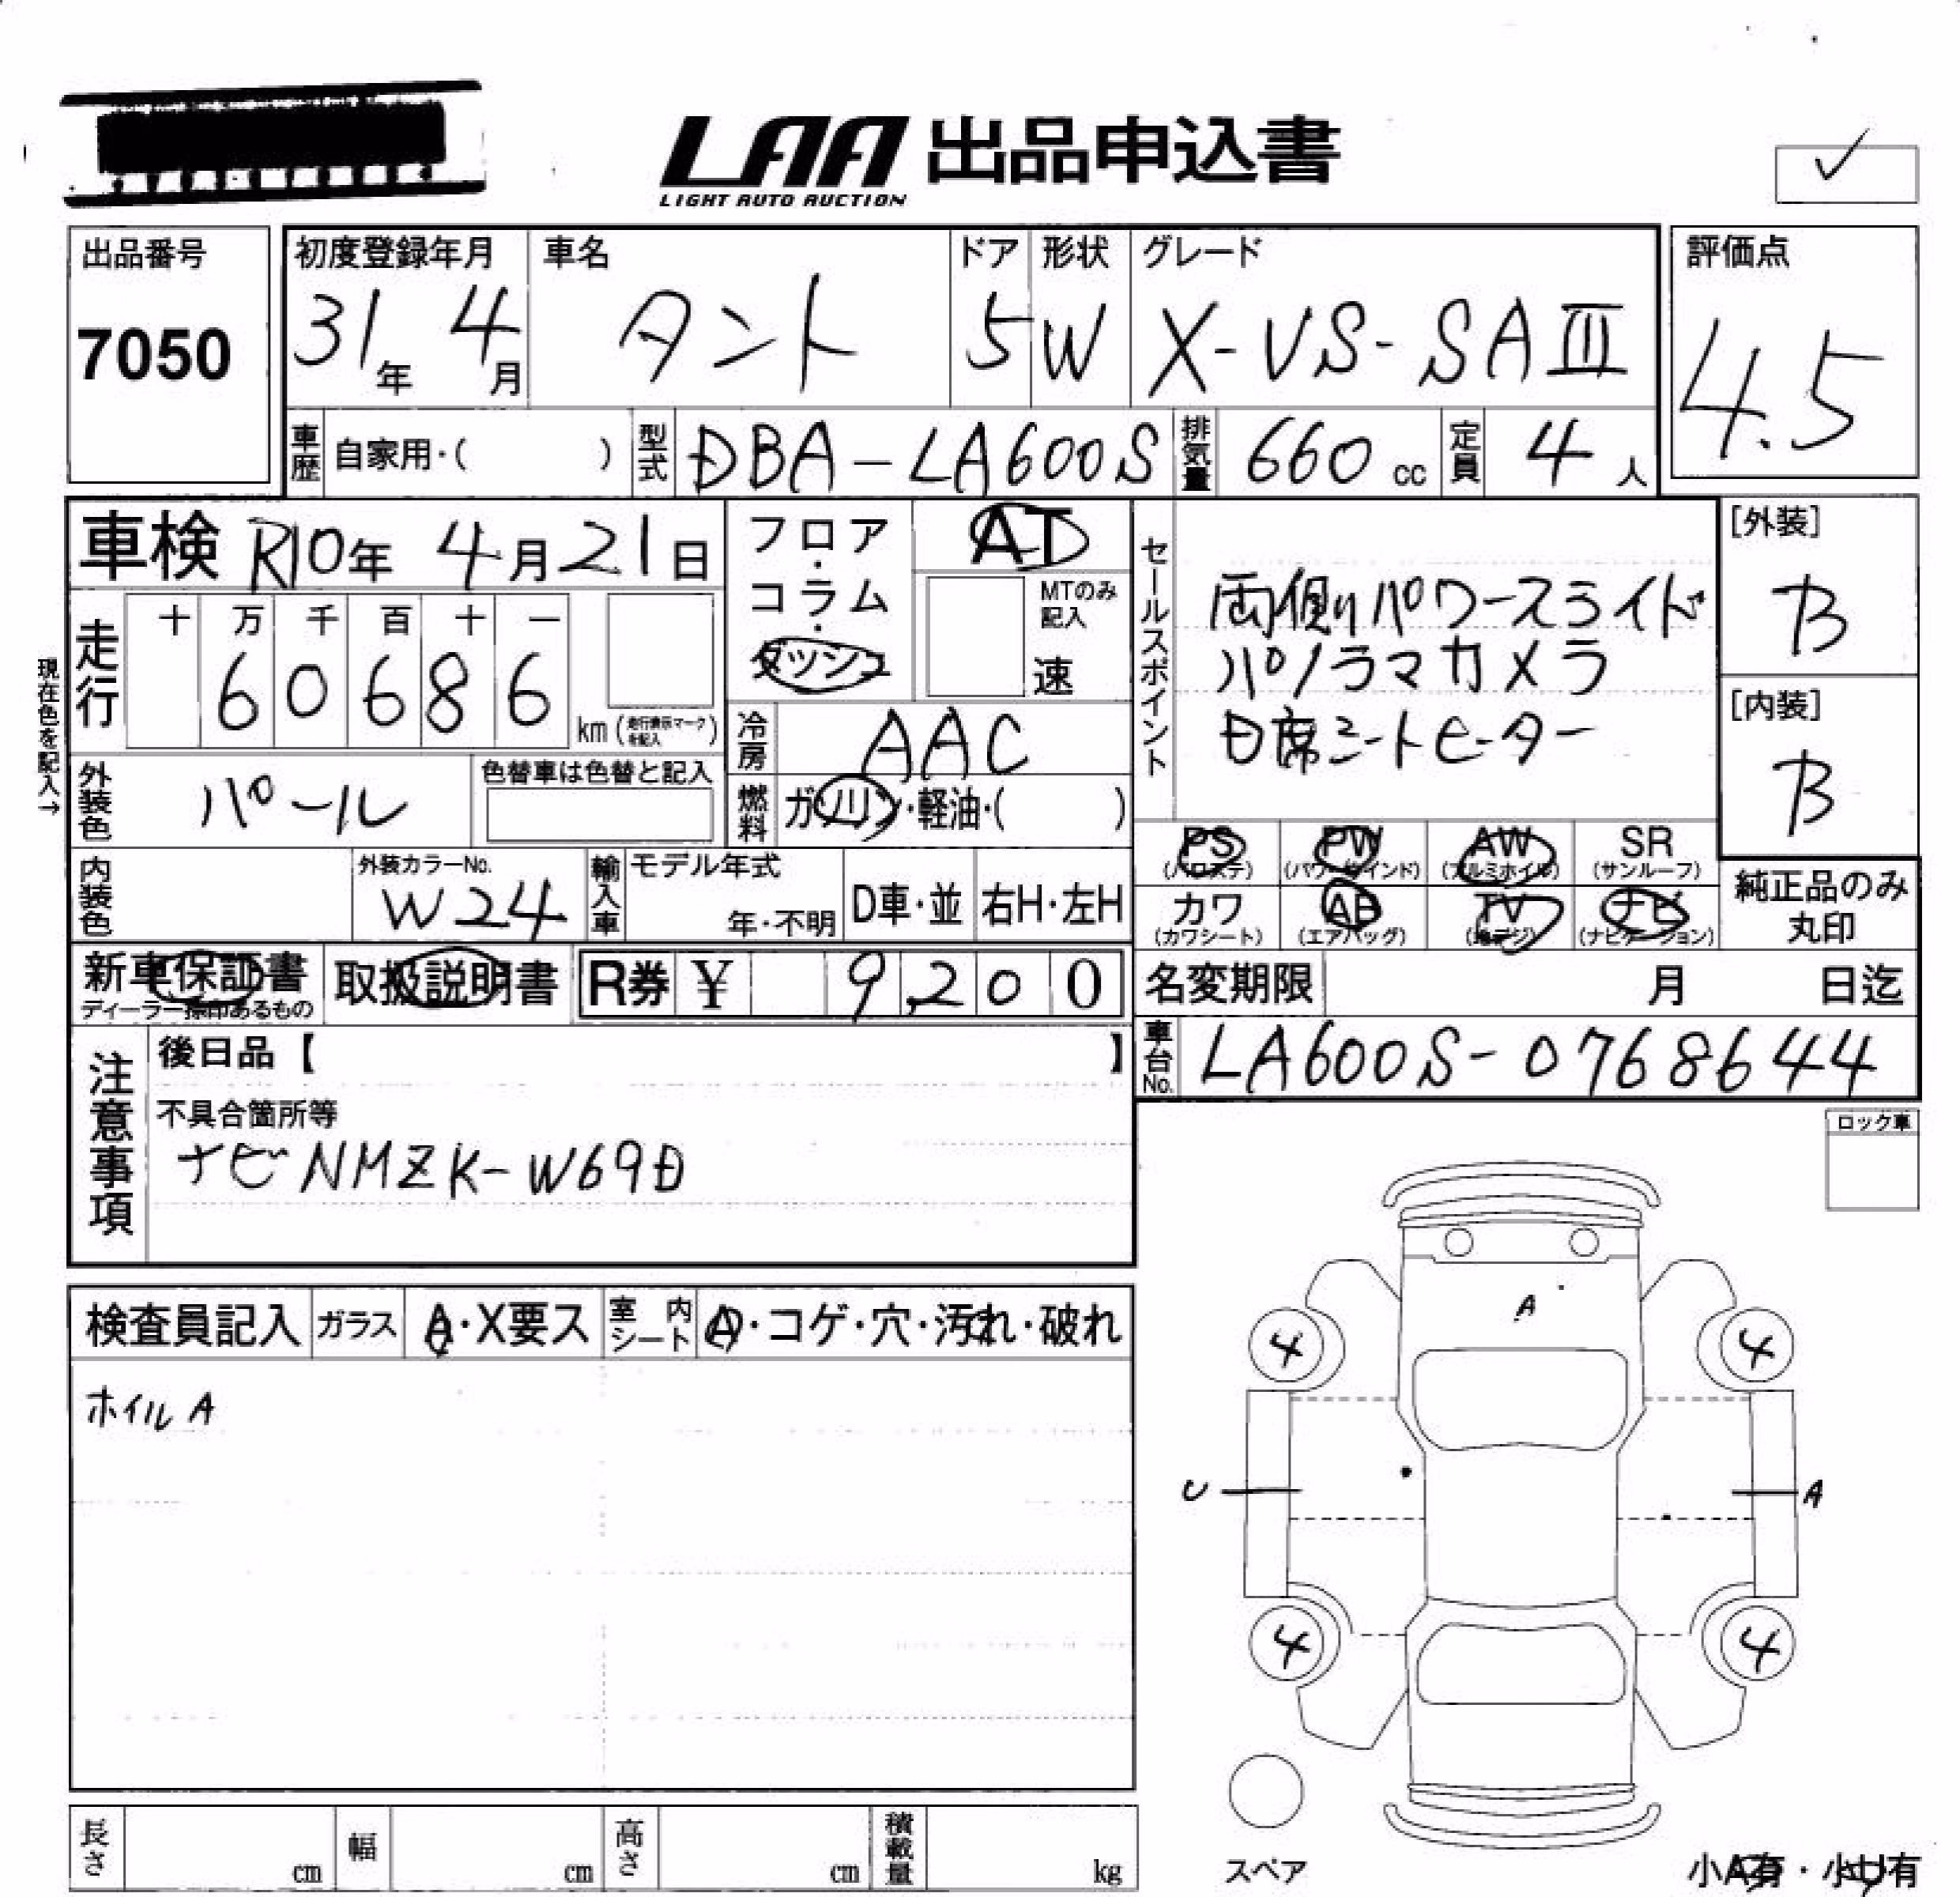 LAA 出品申込書
LIGHT AUTO AUCTION
出品番号
7050
初度登録年月
31年 4月
車名
タント
ドア
5
形状
W
グレード
X-VS-SAⅢ
評価点
4.5
車歴 自家用・( )
型式 DBA-LA600S
排気量 660 cc
定員 4 人
車検 R10年 4月21日
フロア・コラム・ダッシュ
AT
MTのみ記入
速
セールスポイント
両側パワースライド
パノラマカメラ
D席シートヒーター
[外装]
B
[内装]
B
現在色を記入→
走行
十 万 千 百 十 一
6 0 6 8 6
km(走行表示マークを記入)
冷房 AAC
外装色 パール
色替車は色替と記入
燃料 ガソリン・軽油・( )
PS (パワステ)
PW (パワーウインド)
AW (アルミホイル)
SR (サンルーフ)
カワ (カワシート)
AB (エアバッグ)
TV (地デジ)
ナビ (ナビゲーション)
純正品のみ丸印
内装色
外装カラーNo.
W24
輸入車
モデル年式
年・不明
D車・並
右H・左H
新車保証書
ディーラー捺印あるもの
取扱説明書
R券 ¥ 9,200
名変期限 月 日迄
車台No. LA600S-0768644
注意事項
後日品【 】
不具合箇所等
ナビ NMZK-W69D
ロック車
検査員記入
ガラス A・X要ス
室内シート A・コゲ・穴・汚れ・破れ
ホイル A
A
4
4
U
A
4
4
スペア
長さ cm
幅 cm
高さ cm
積載量 kg
小A有・小U有